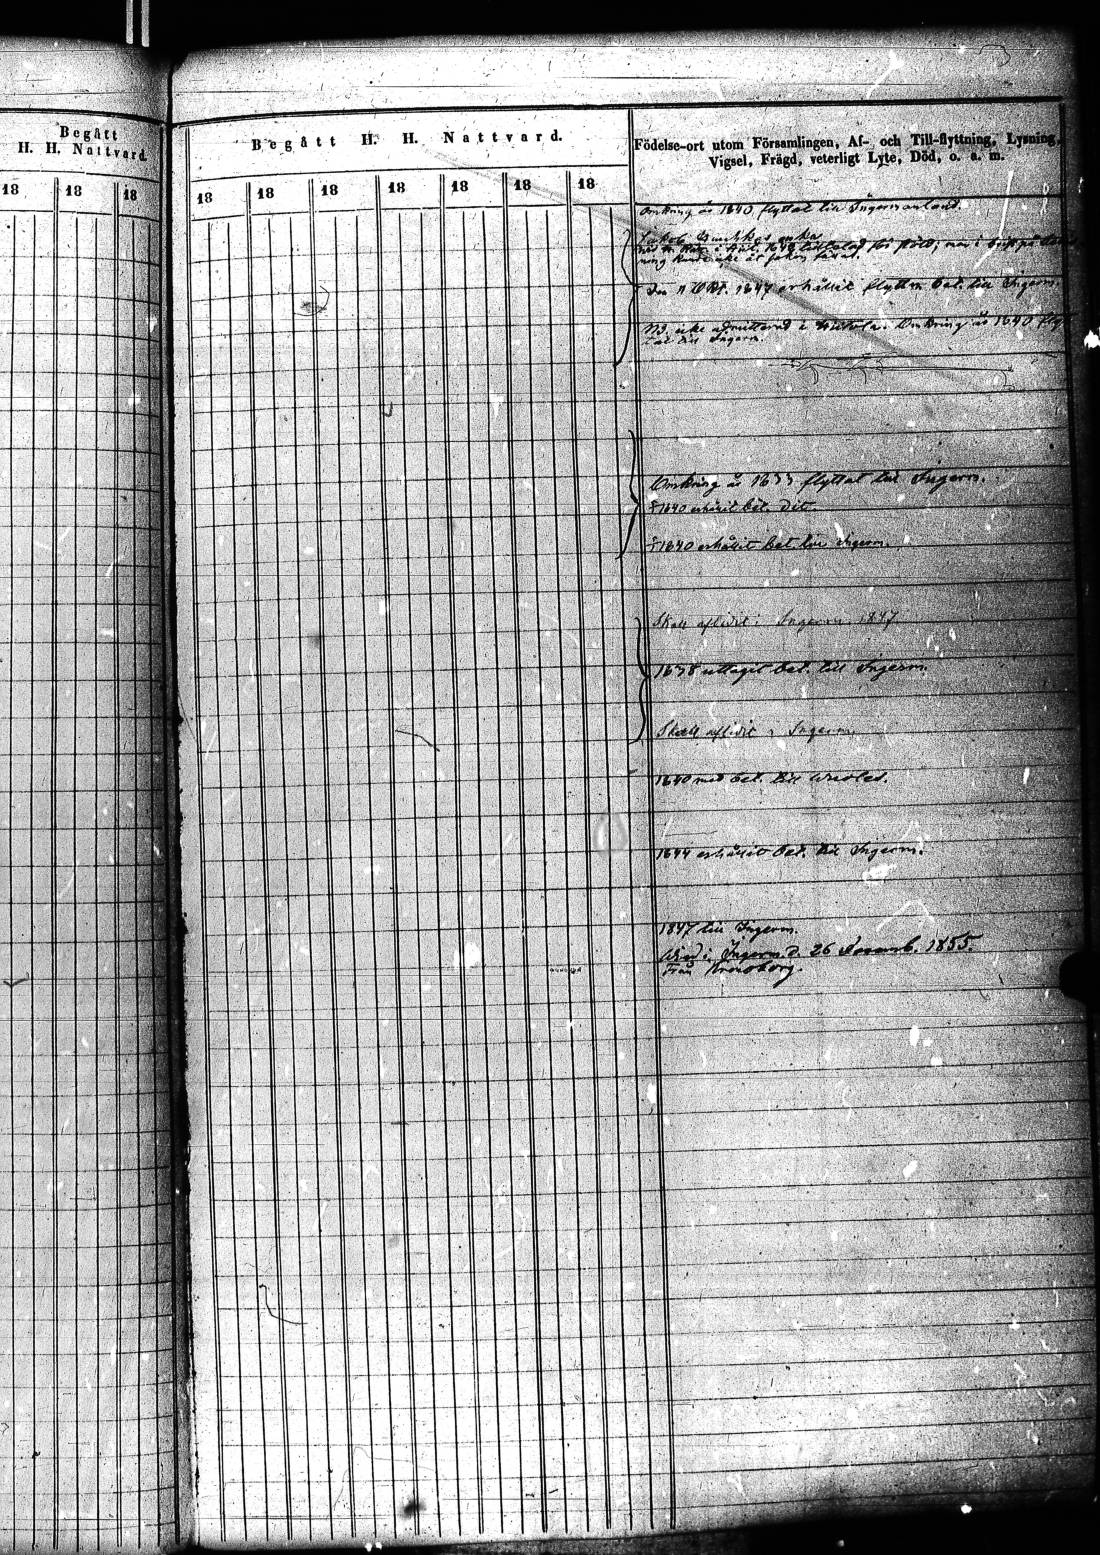 Begått
H. H. Nattvard.
18 18 18
Begått H. H. Nattvard.
18 18 18 18 18 18 18
Födelse-ort utom Församlingen, Af- och Till-flyttning, Lysning,
Vigsel, Frägd, veterligt Lyte, Död, o. a. m.
Omkring år 1840 flyttat till Ingermanland.
enka
Den 11 Okt. 1847 erhållit flyttn. bet. till Ingerm.
icke admitterad i Omkring år 1840 flyt-
tat till Ingerm.
Omkring år 1833 flyttat till Ingerm.
1840 erhållit bet. dit.
1840 erhållit bet. till Ingerm.
Skall aflidit i Ingerm. 1847.
1838 uttagit bet. till Ingerm.
Skall aflidit i Ingerm.
1840 med bet. till
1844 erhållit bet. till Ingerm.
1847 till Ingerm.
i Ingerm. d. 26 Novemb. 1855.
från Kronoborg.